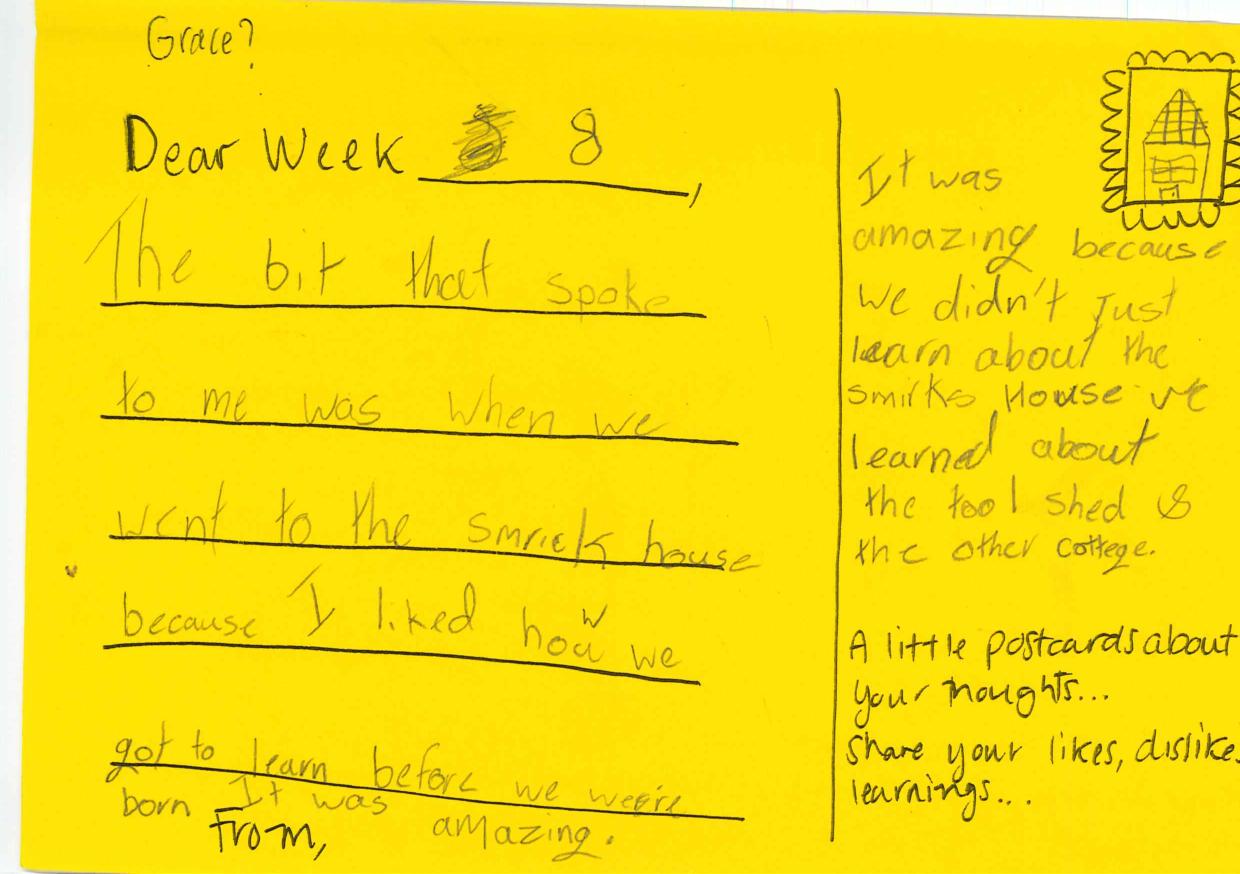 Grace?
Dear Week 8,
The bit that spoke
to me was when we
went to the smrick house
because I liked how we
got to learn before we were
born It was
amazing.
From,
It was
amazing because
we didn't Just
learn about the
smirks House we
learned about
the tool shed &
the other cottege.
A little postcards about
your thoughts...
Share your likes, dislikes
learnings...